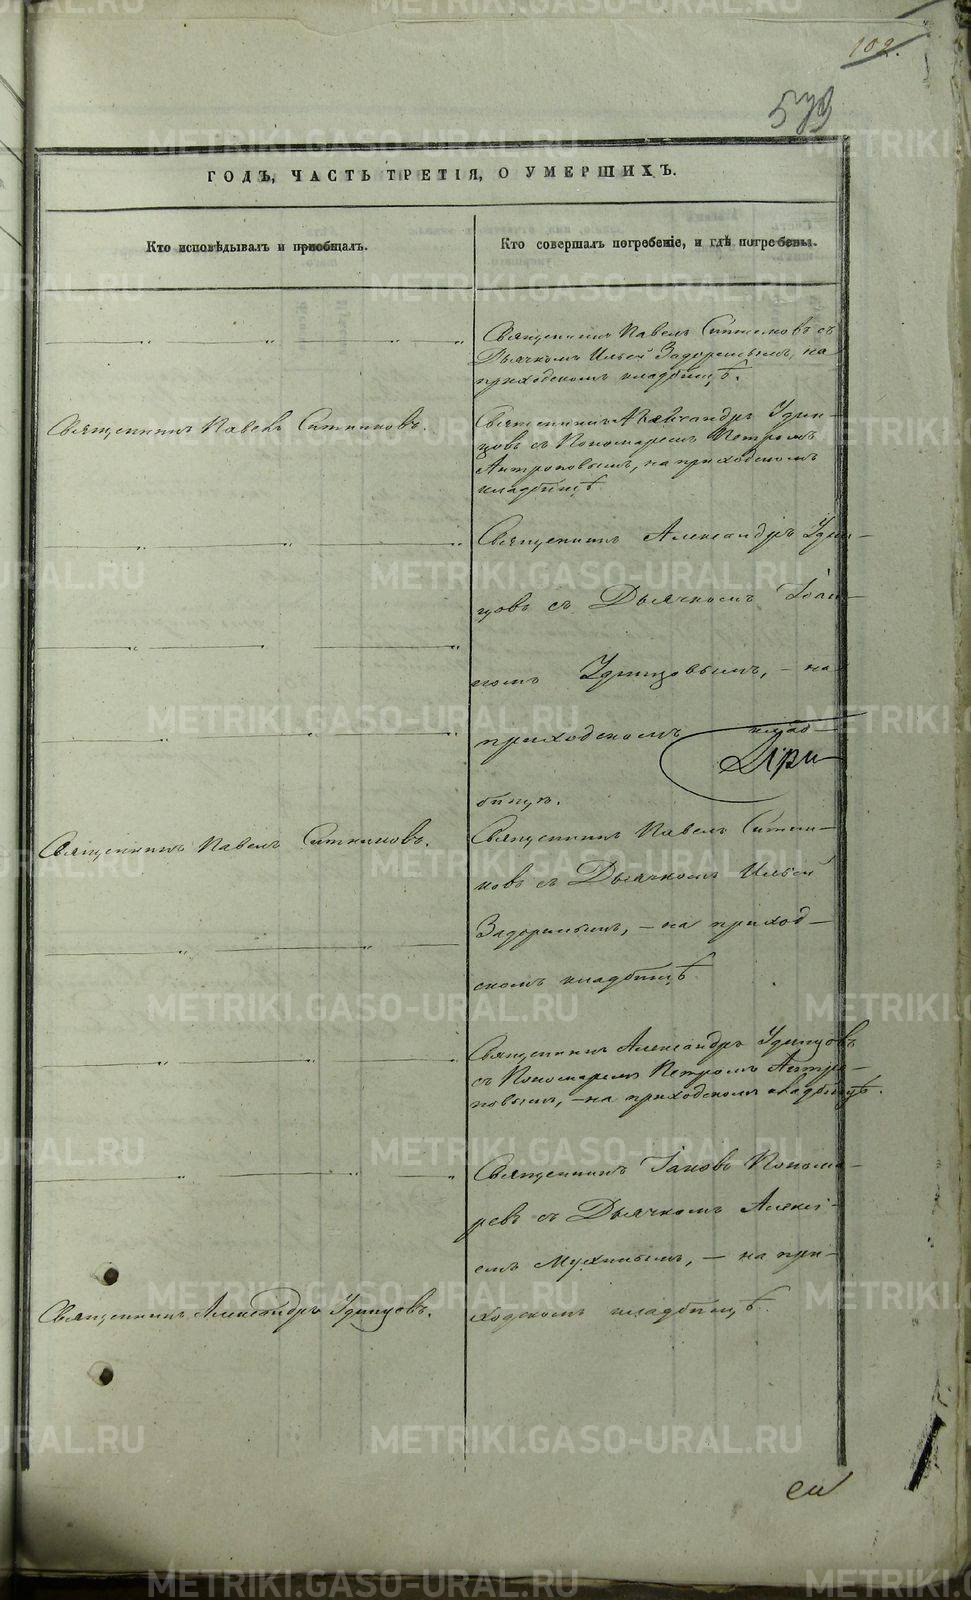 102.
579
ГОДЪ, ЧАСТЬ ТРЕТІЯ, О УМЕРШИХЪ.
Кто исповѣдывалъ и пріобщалъ.
Кто совершалъ погребеніе, и гдѣ погребены.
Священникъ Павелъ Ситниковъ съ
Дьячкомъ Ильей Задоринымъ, на
приходскомъ кладбищѣ.
Священникъ Павелъ Ситниковъ.
Священникъ Александръ Удин-
цовъ съ Пономаремъ Петромъ
Антроповымъ, на приходскомъ
кладбищѣ
Священникъ Александръ Удин-
цовъ съ Дьячкомъ Іоан-
номъ Удинцовымъ, - на
приходскомъ клад-
бищѣ.
Священникъ Павелъ Ситниковъ.
Священникъ Павелъ Ситни-
ковъ съ Дьячкомъ Ильей
Задоринымъ, - на приход-
скомъ кладбищѣ
Священникъ Александръ Удинцовъ
съ Пономаремъ Петромъ Антро-
повымъ, - на приходскомъ кладбищѣ.
Священникъ Іаковъ Понома-
ревъ съ Дьячкомъ Алексі-
емъ Мухинымъ, - на при-
ходскомъ кладбищѣ.
Священникъ Александръ Удинцовъ.
METRIKI.GASO-URAL.RU